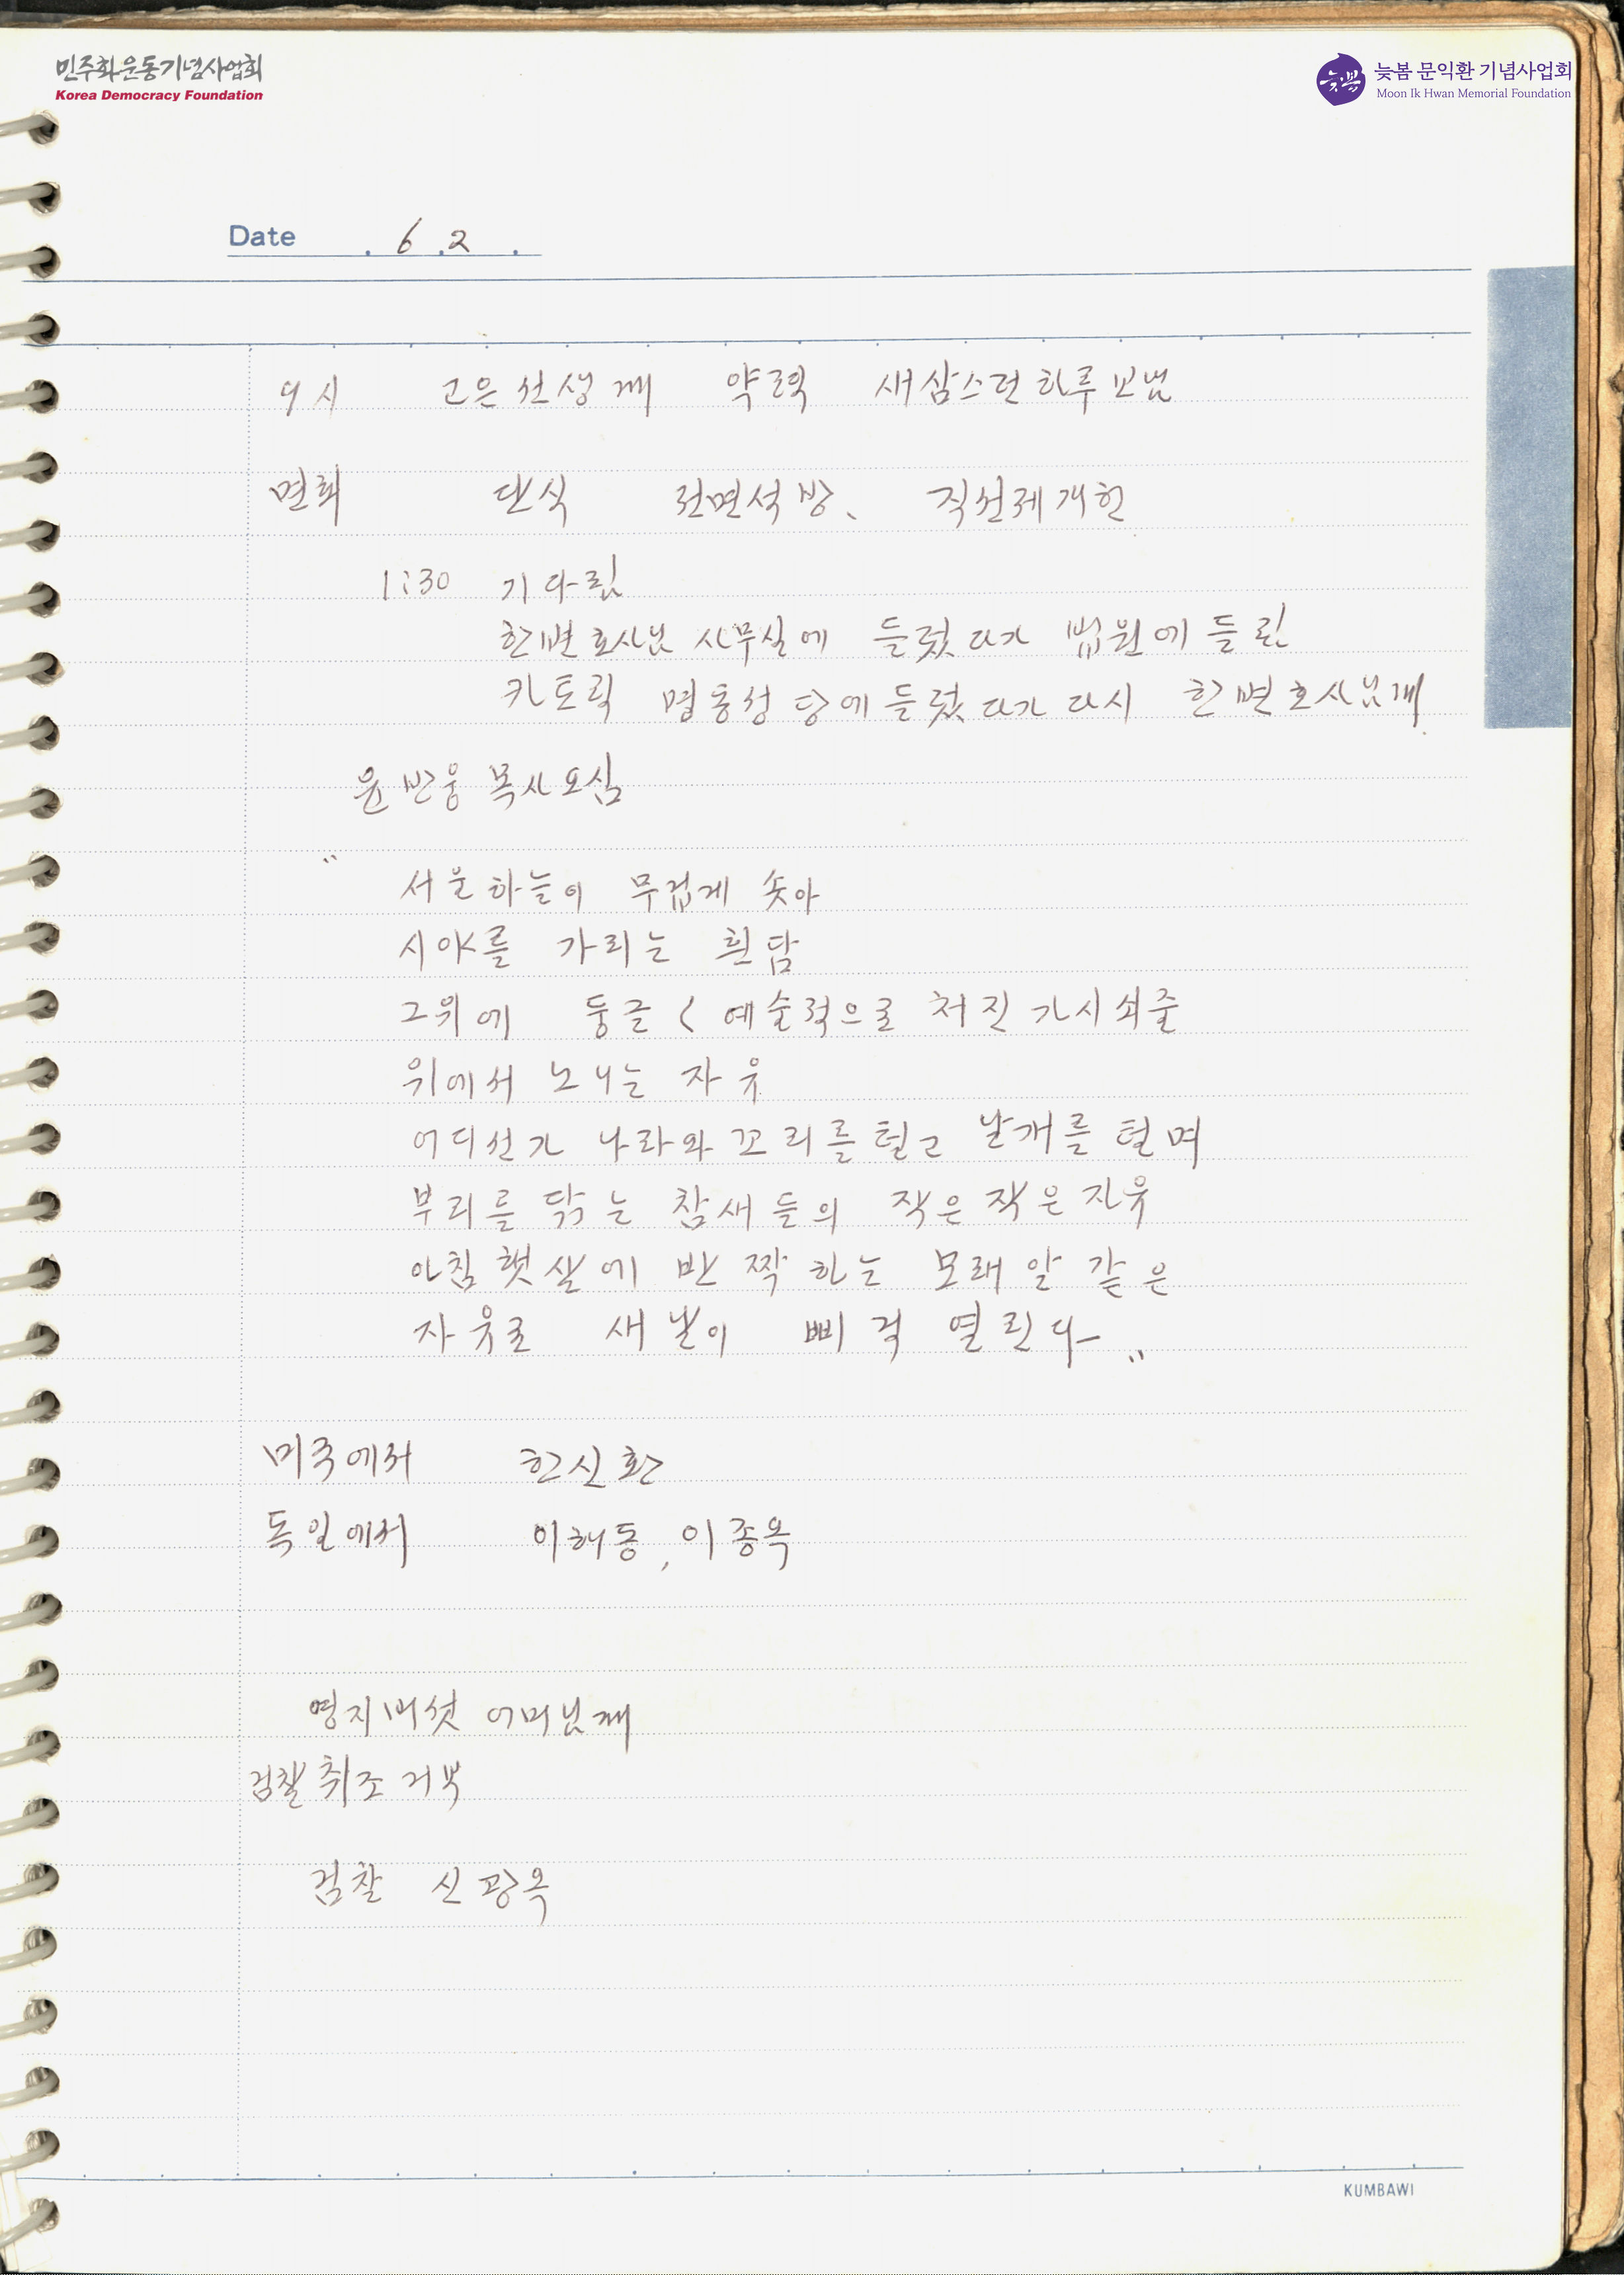 민주화운동기념사업회
Korea Democracy Foundation
늦봄
늦봄 문익환 기념사업회
Moon Ik Hwan Memorial Foundation
Date . 6 . 2 .
9시 고은선생께 약력 새삼스런하루 보냄
면회 단식 전면석방、 직선제개헌
1:30 기다림
한변호사님 사무실에 들렀다가 법원에 들린
카토릭 명동성당에 들렀다가 다시 한변호사님께.
윤반웅 목사 오심
"
서울하늘이 무겁게 솟아
시야를 가리는 흰담
그위에 둥글 〈 예술적으로 처진 가시쇠줄
위에서 노니는 자유
어디선가 나라와 꼬리를 털고 날개를 털며
부리를 닦는 참새들의 작은 작은 자유
아침 햇살에 반짝하는 모래알 같은
자유로 새날이 삐걱 열린다 "
미국에서 한신환
독일에서 이해동, 이종옥
영지버섯 어머님께
검찰취조 거부
검찰 신광옥
KUMBAWI